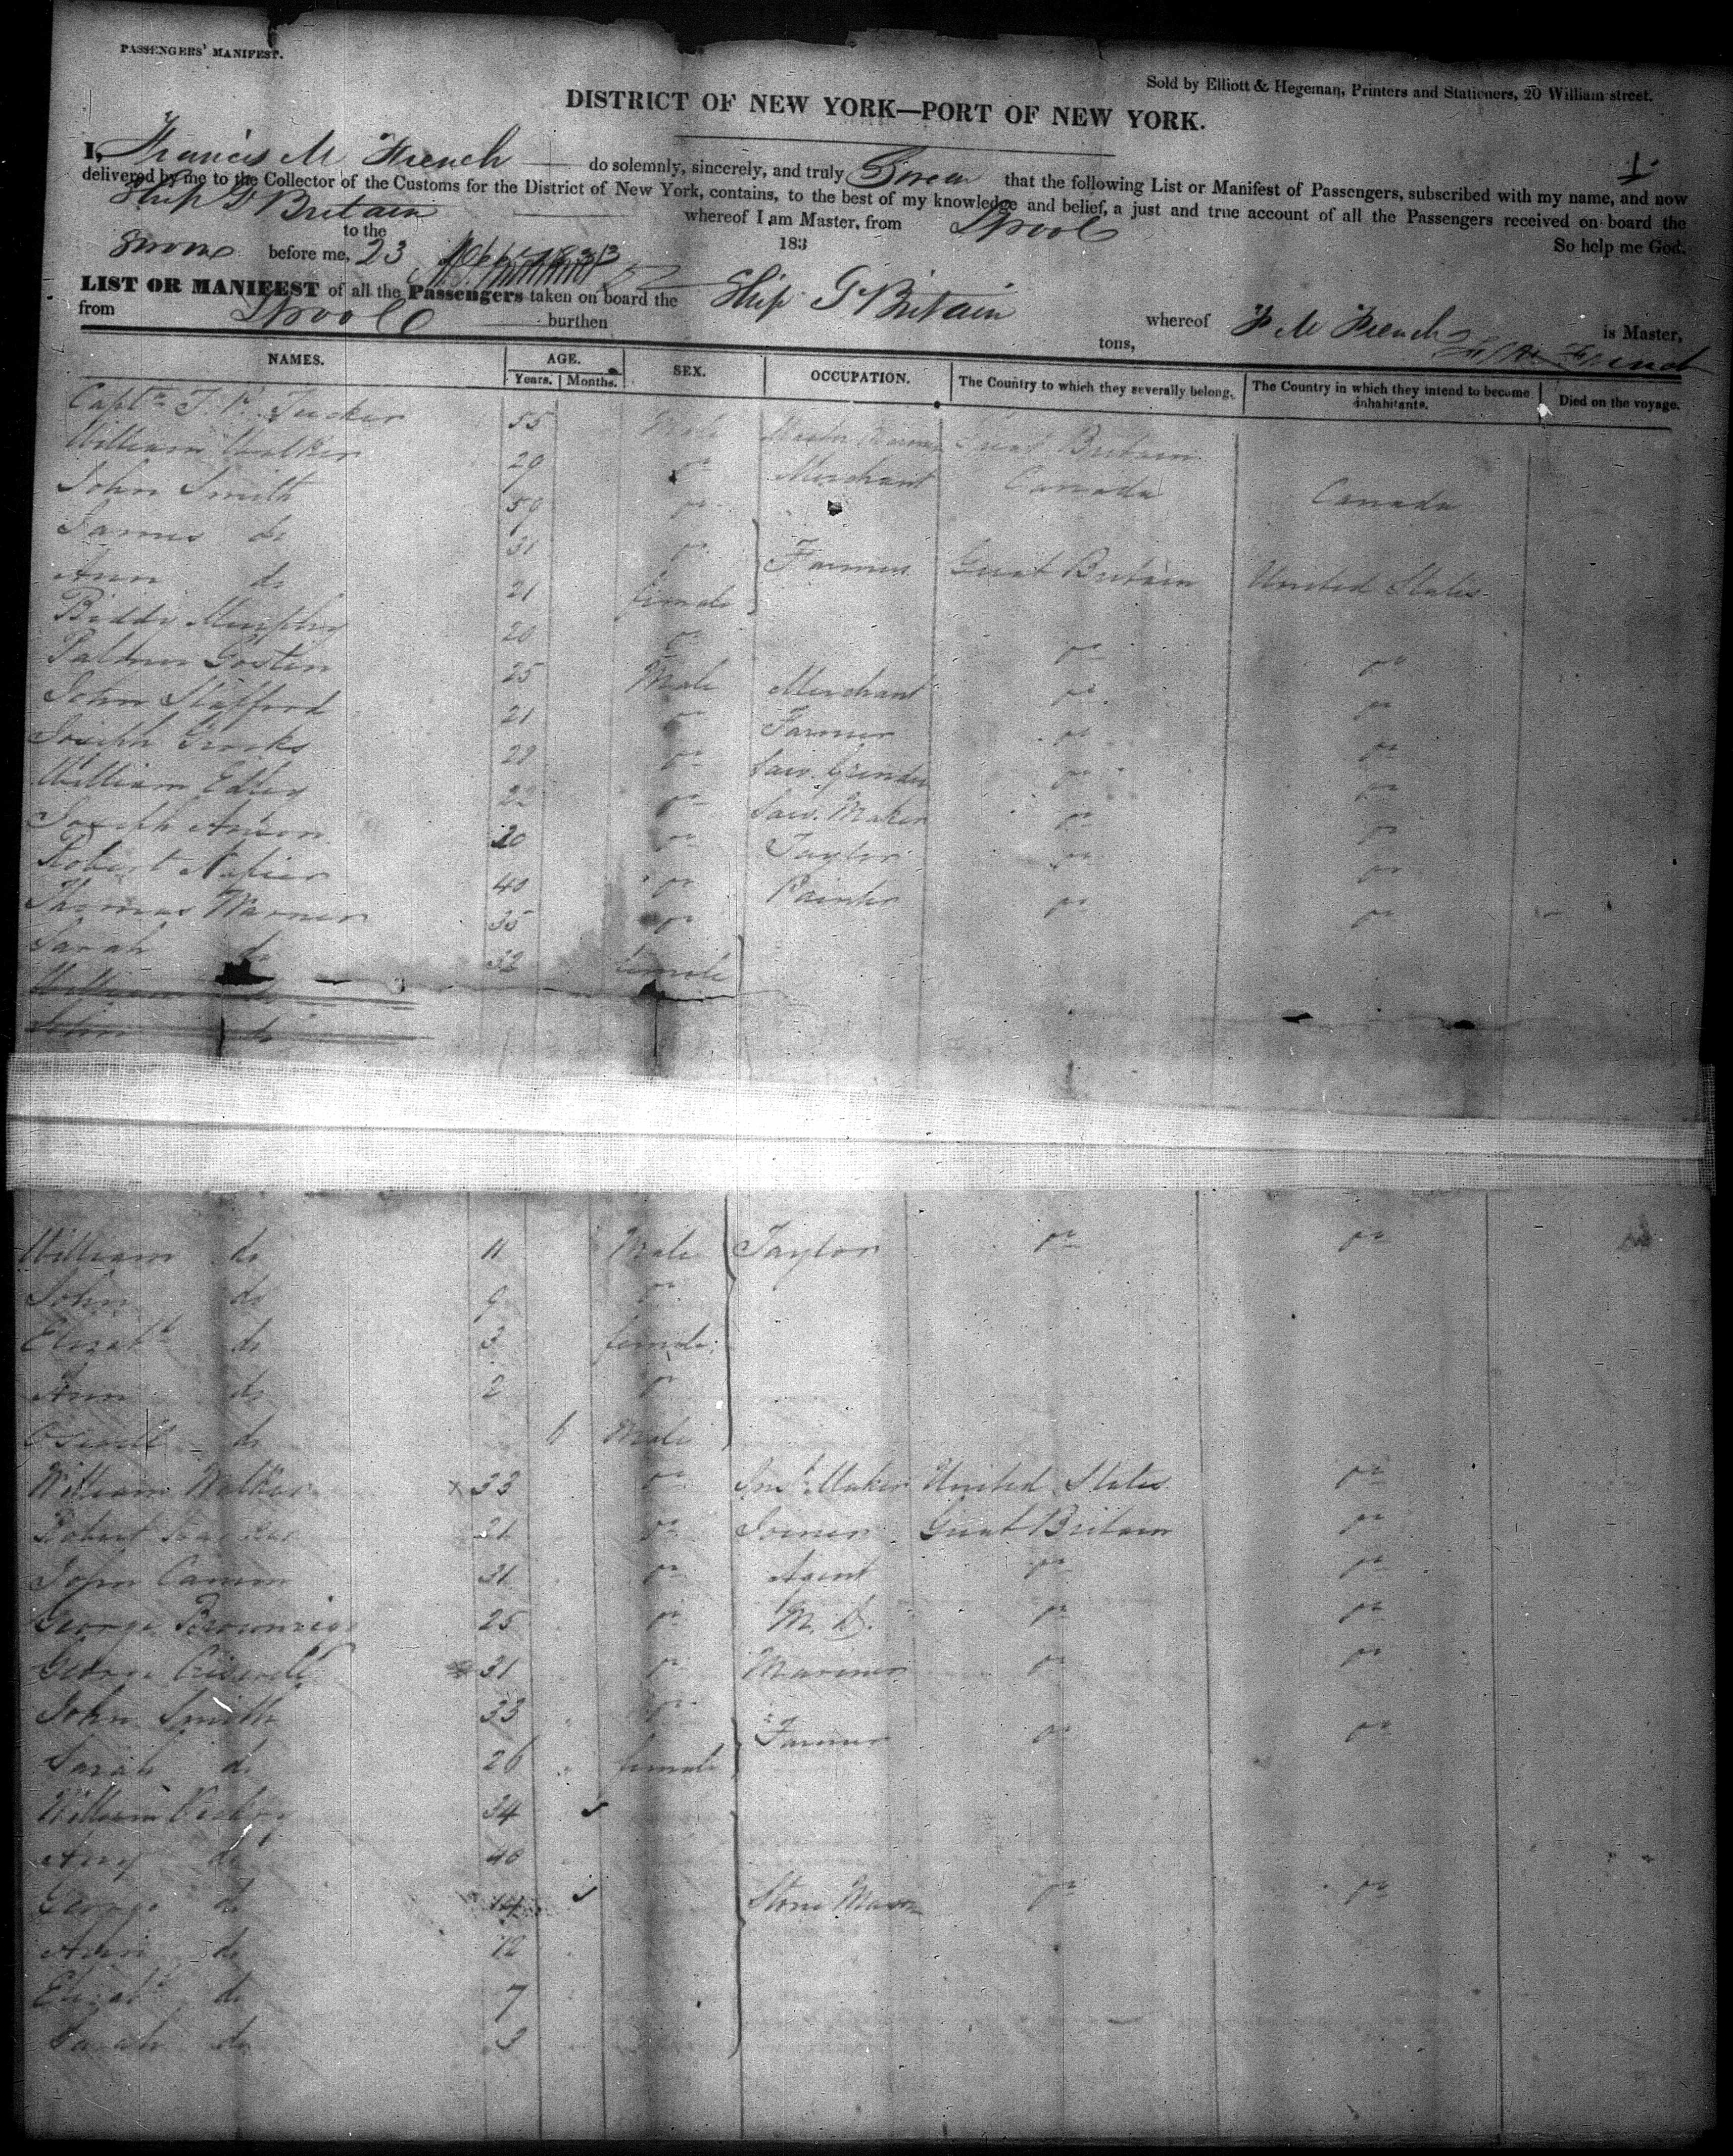 PASSENGERS' MANIFEST.
Sold by Elliott & Hegeman, Printers and Stationers, 20 William street.
DISTRICT OF NEW YORK—PORT OF NEW YORK.
I, Francis M French do solemnly, sincerely, and truly Swear that the following List or Manifest of Passengers, subscribed with my name, and now
delivered by me to the Collector of the Customs for the District of New York, contains, to the best of my knowledge and belief, a just and true account of all the Passengers received on board the
Ship G Britain whereof I am Master, from Lpool
to the
Sworn before me, 23 183 So help me God.
LIST OR MANIFEST of all the Passengers taken on board the Ship G Britain whereof F M French is Master,
from Lpool burthen tons,
NAMES. AGE. SEX. OCCUPATION. The Country to which they severally belong. The Country in which they intend to become inhabitants. Died on the voyage.
Years. Months.
Captn Tucker 55 Male Great Britain
William Walker 29 do Merchant Canada Canada
John Smith 59 do
James do 31 do Farmer Great Britain United States
Ann do 21 female
Biddy Murphy 20 do do do
Palmer 25 Male Merchant do do
John Stafford 21 do Farmer do do
Joseph 22 do Saw Grinder do do
William 22 do Saw Maker do do
Joseph 20 do Taylor do do
Robert Napier 40 do Painter do do
Thomas Warner 35 do
Sarah do 32 female
William do
John do
William do 11 Male Taylor do do
John do 9 do
Elizath do 3 female
Ann do 2 do
do 6 Male
William Walker 33 do Maker United States do
Robert 21 do Joiner Great Britain do
John 31 do Agent do do
George Brownrigg 25 do M. D. do do
George 31 do Mariner do do
John Smith 33 do Farmer do do
Sarah do 26 female
William 34
do 40
George do 14 Stone Mason do do
Ann do 12
Elizath do 7
Sarah do 3